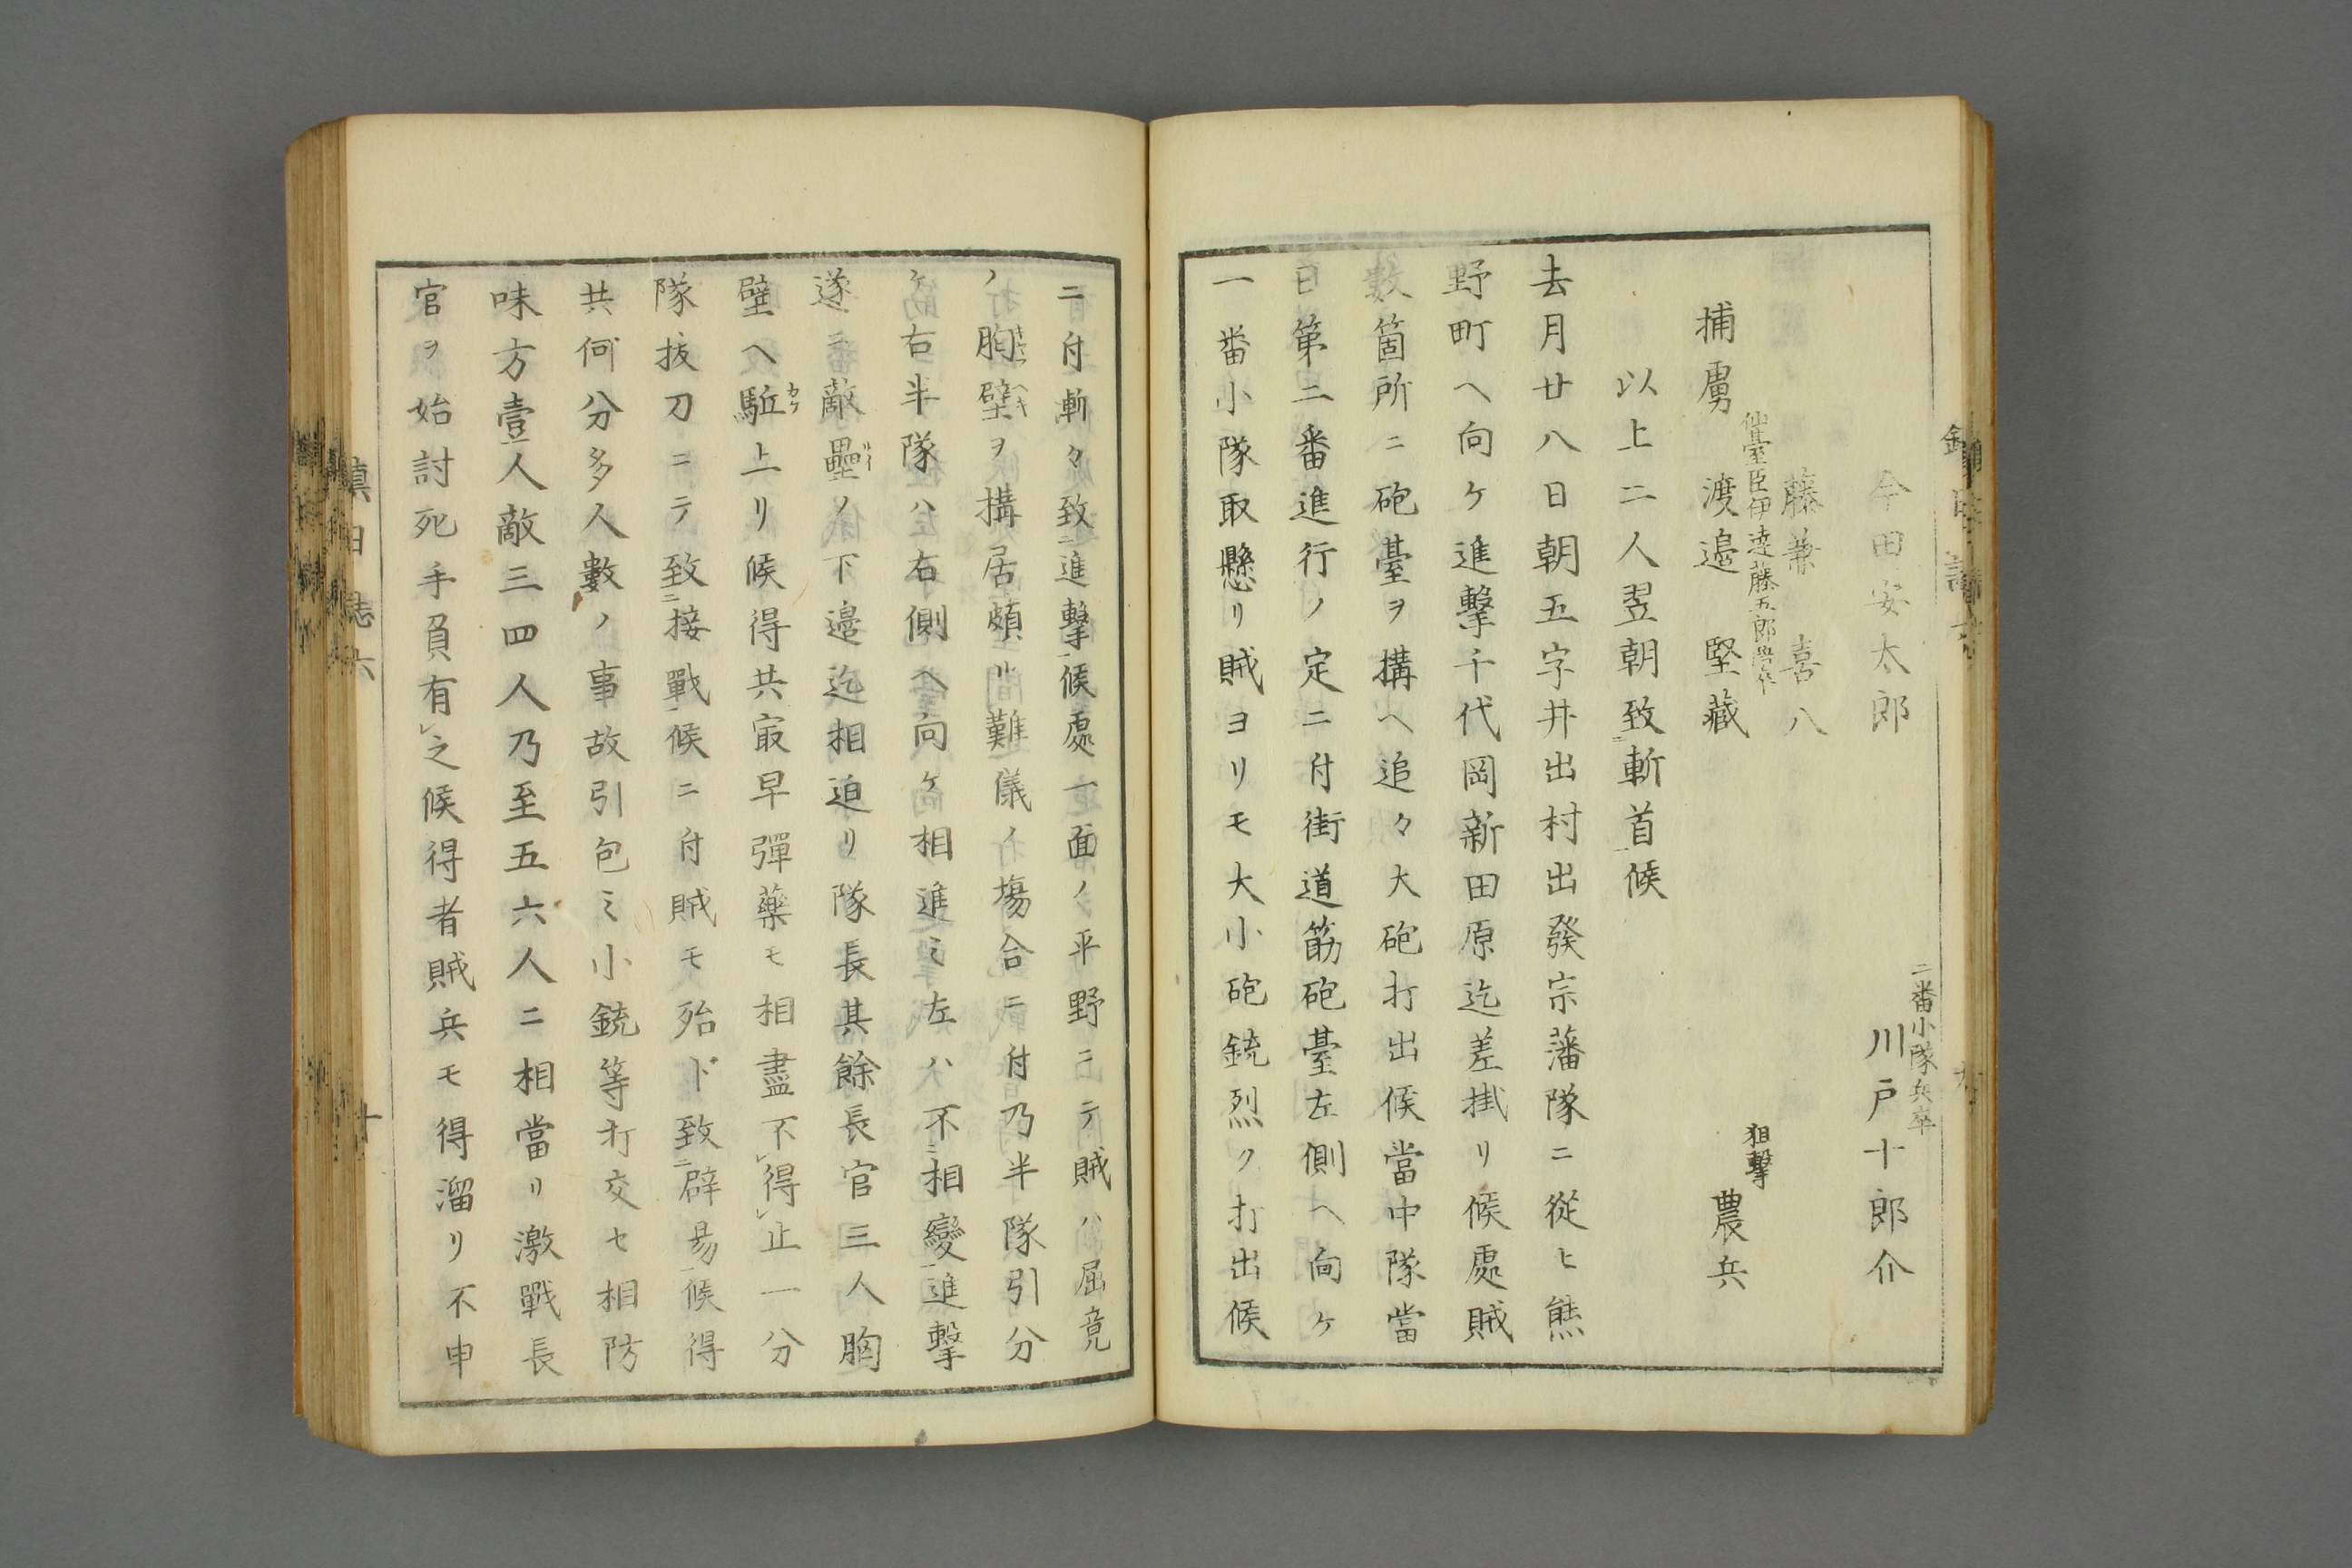 今田安太郎
二番小隊兵卒
川戸十郎介
藤兼喜八
仙臺臣伊達藤五郎
狙撃
捕虜　渡邉堅藏　農兵
以上二人翌朝致斬首候
去月廿八日朝五字井出村出發宗藩隊ニ從ヒ熊
野町ヘ向ケ進擊千代岡新田原迄差掛リ候處賊
數箇所ニ砲臺ヲ構ヘ追々大砲打出候當中隊當
日第二番進行ノ定ニ付街道筋砲臺左側ヘ向ケ
一番小隊取懸リ賊ヨリモ大小砲銃烈ク打出候
ニ付斬々致進擊候處一面ノ平野ニテ賊ハ屈竟
ノ胸壁ヲ構居頗ル難儀ノ塲合ニ付乃半隊引分
ケ右半隊ハ左右側ヘ向ケ相進ミ左ハ不相變進擊
遂ニ敵壘ノ下邉迄相迫リ隊長其餘長官三人胸
壁ヘ駈上リ候得共㝡早彈藥モ相盡不得止一分
隊拔刀ニテ致接戰候ニ付賊モ殆ド致辟易候得
共何分多人數ノ事故引包ミ小銃等打交セ相防
味方壹人敵三四人乃至五六人ニ相當リ激戰長
官ヲ始討死手負有之候得者賊兵モ得溜リ不申
鎭日誌六
十